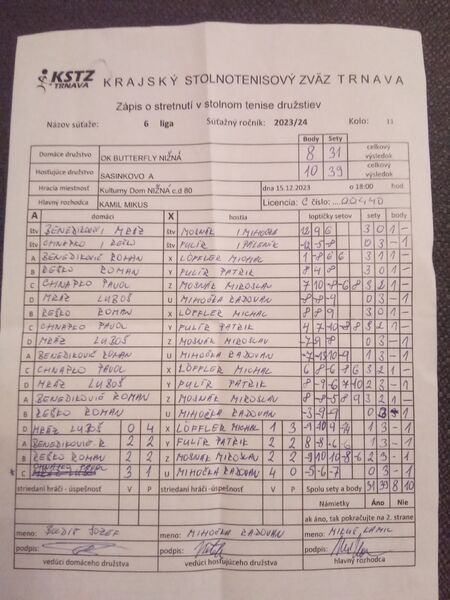 KSTZ TRNAVA KRAJSKÝ STOLNOTENISOVÝ ZVÄZ TRNAVA
Zápis o stretnutí v stolnom tenise družstiev
Názov súťaže: 6 liga Súťažný ročník: 2023/24 Kolo: 11
Body Sety
Domáce družstvo OK BUTTERFLY NIŽNÁ 8 31 celkový výsledok
Hosťujúce družstvo SASINKOVO A 10 39 celkový výsledok
Hracia miestnosť Kulturny Dom NIŽNÁ c.d 80 dna 15.12.2023 o 18:00 hod.
Hlavný rozhodca KAMIL MIKUS Licencia: C číslo: 00440
A domáci X hostia loptičky setov sety body
štv BENEDIKOVIČ MRÁZ MOSNÁK MIHOČKA 3 0 1 -
štv CHNAPKO REŠKO FULÍR 0 3 - 1
A BENEDIKOVIČ ROMAN X LÖFFLER MICHAL 3 1 1 -
B REŠKO ROMAN Y FULÍR PATRIK 8 4 8 3 0 1 -
C CHNAPKO PAVOL Z MOSNÁK MIROSLAV 7 10 -8 -6 8 3 2 1 -
D MRÁZ ĽUBOŠ U MIHOČKA RADOVAN -8 -8 -9 0 3 - 1
B REŠKO ROMAN X LÖFFLER MICHAL 8 8 9 3 0 1 -
C CHNAPKO PAVOL Y FULÍR PATRIK 3 2 1 -
D MRÁZ ĽUBOŠ Z MOSNÁK MIROSLAV -7 -9 -8 0 3 - 1
A BENEDIKOVIČ ROMAN U MIHOČKA RADOVAN 1 3 - 1
C CHNAPKO PAVOL X LÖFFLER MICHAL 6 8 -6 8 6 3 2 1 -
D MRÁZ ĽUBOŠ Y FULÍR PATRIK 8 -9 -6 7 -10 2 3 - 1
A BENEDIKOVIČ ROMAN Z MOSNÁK MIROSLAV 8 -8 -5 8 9 3 2 1 -
B REŠKO ROMAN U MIHOČKA RADOVAN -3 -9 -9 0 3 - 1
D MRÁZ ĽUBOŠ 0 4 X LÖFFLER MICHAL 1 3 1 3 - 1
A BENEDIKOVIČ R. 2 2 Y FULÍR PATRIK 2 2 8 -8 -6 -6 1 3 - 1
B REŠKO ROMAN 2 2 Z MOSNÁK MIROSLAV 2 2 2 3 - 1
C CHNAPKO PAVOL 3 1 U MIHOČKA RADOVAN 4 0 -5 -6 -7 0 3 - 1
striedaní hráči - úspešnosť V P striedaní hráči - úspešnosť V P Spolu sety a body 31 39 8 10
Námietky Áno Nie
ak áno, tak pokračujte na 2. strane
meno: JOZEF meno: MIHOČKA RADOVAN meno: MIKUŠ KAMIL
podpis: podpis: podpis:
vedúci domáceho družstva vedúci hosťujúceho družstva hlavný rozhodca